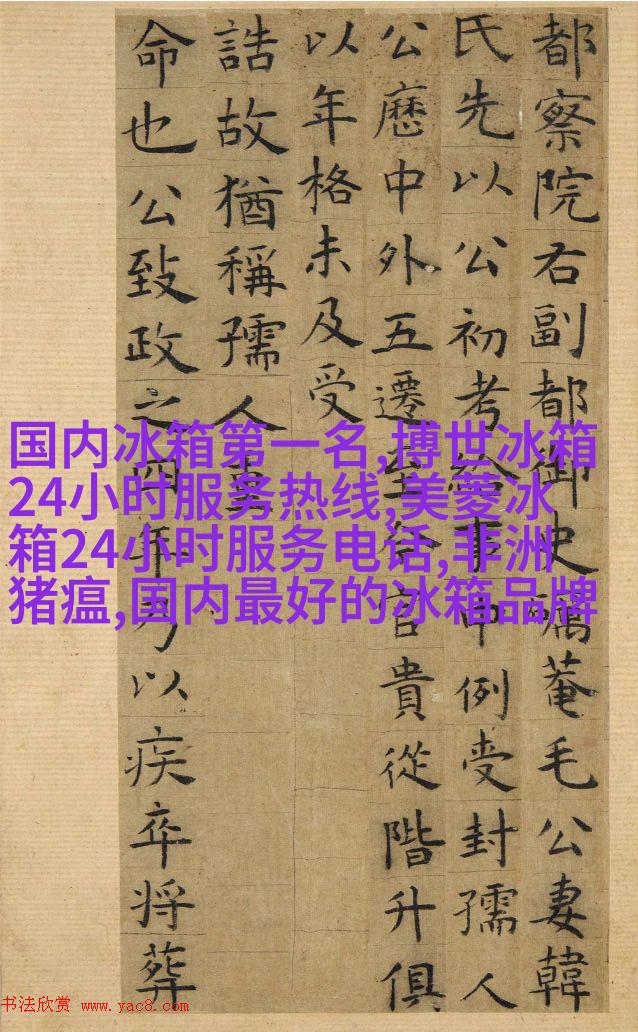 都察院右副都御史礪菴毛公妻韓
氏先以公初考給事中例受封孺人
公歷中外五遷至今官貴從階升俱
以年格未及受
誥故猶稱孺人重
命也公致政之四年乃以疾卒将葬
国内冰箱第一名,博世冰箱
24小时服务热线,美菱冰
箱24小时服务电话,非洲
猪瘟,国内最好的冰箱品牌
书法欣赏 www.yac8.com